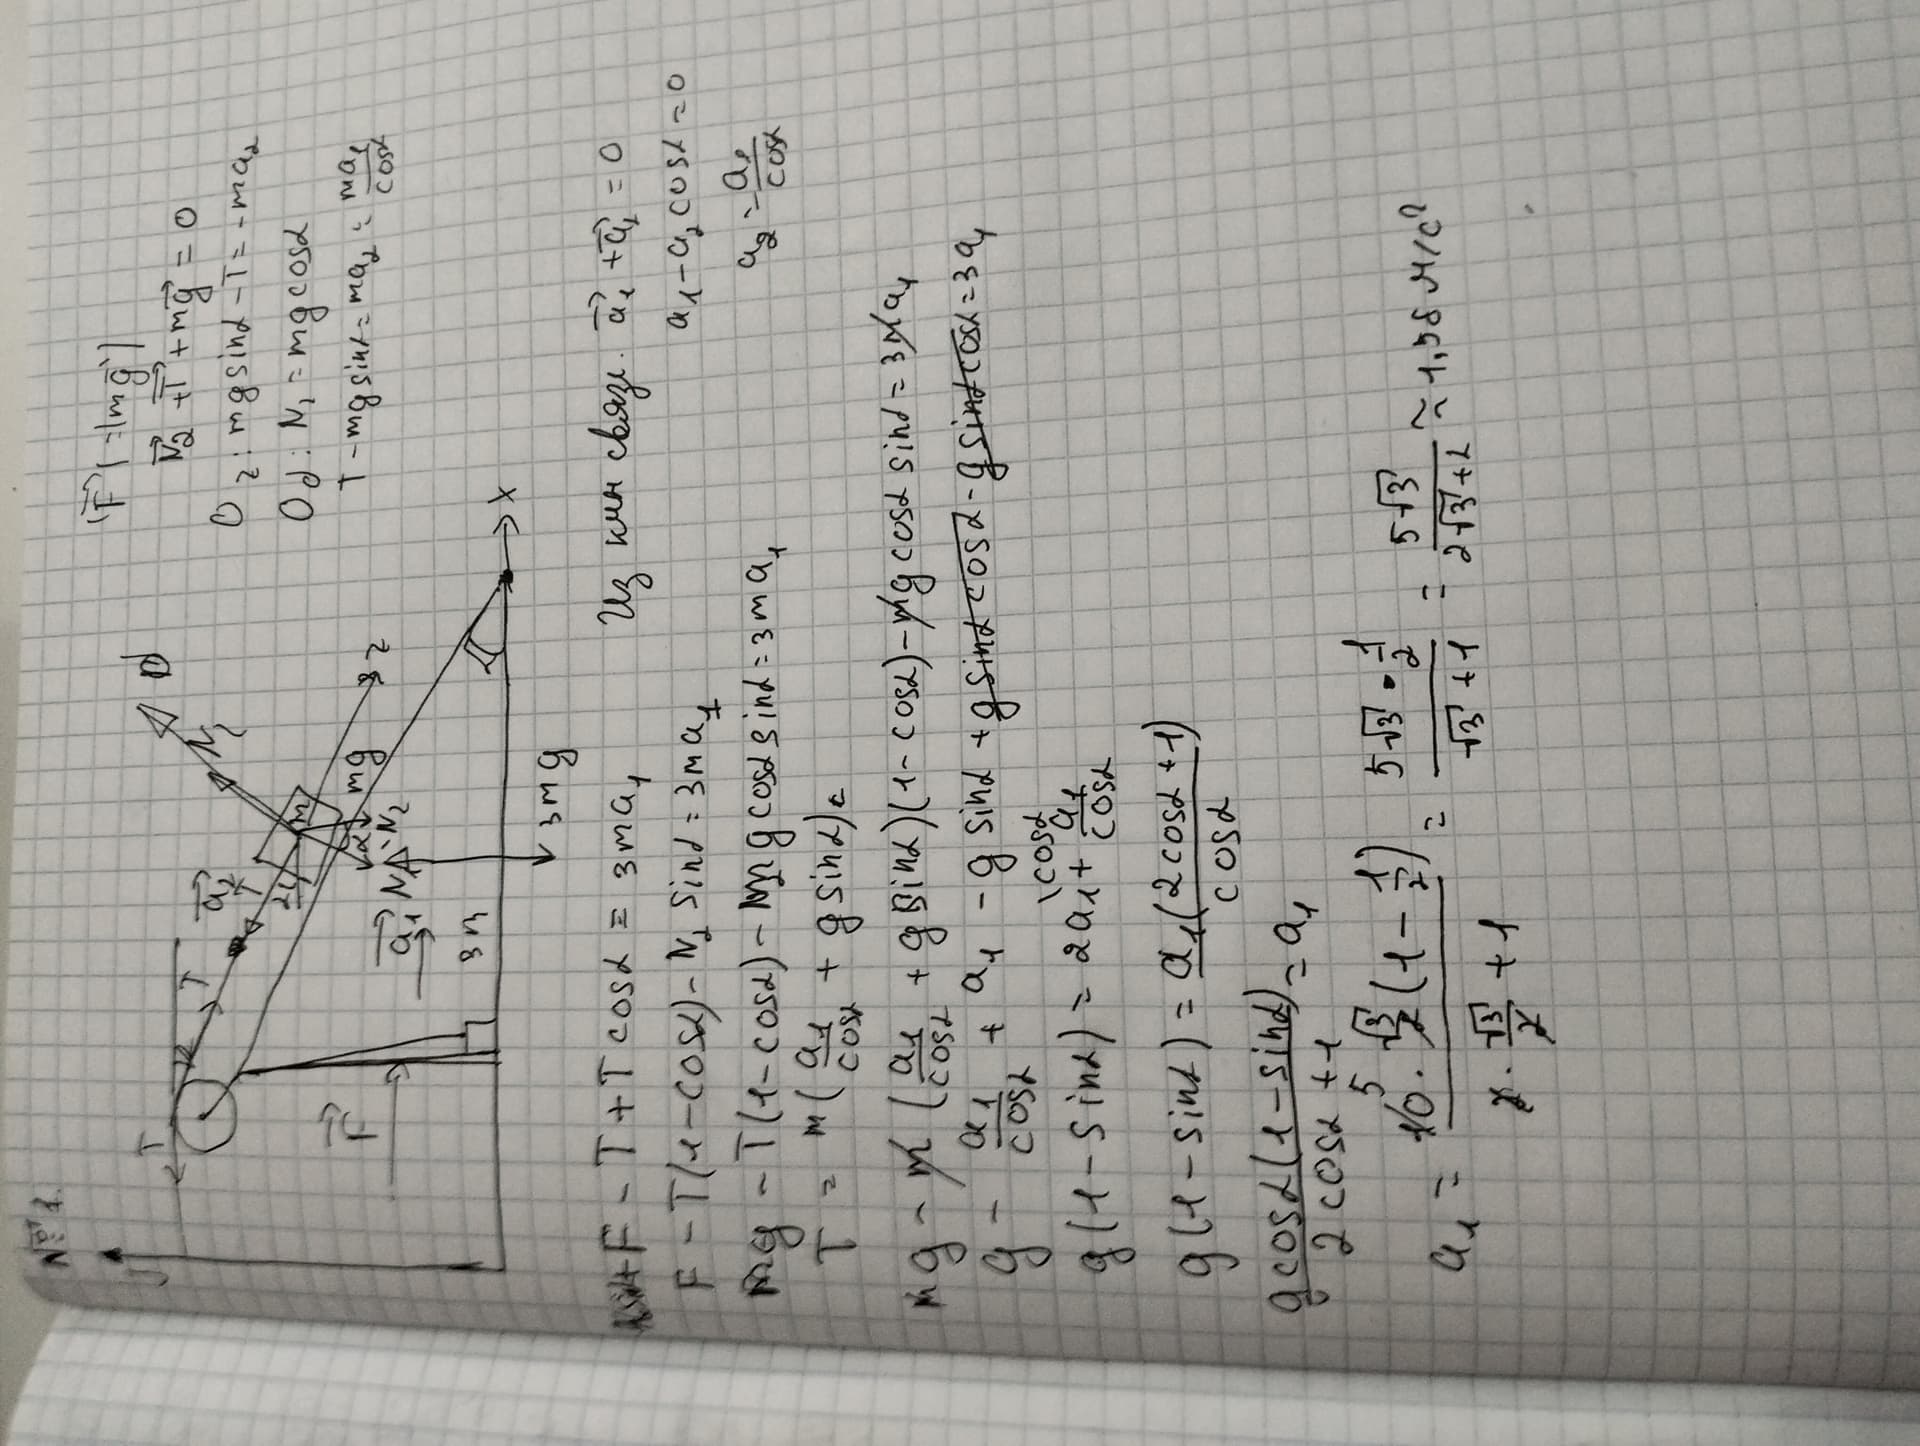 № 1.
y
T
T
a₂
T
m
N₂
D
mg
α
z
F
a₁
N₁
N₂
3m
3mg
x
|F| = |mg|
N₂ + T + mg = 0
Oz: mg sinα - T = - ma₂
Od: N₂ = mg cosα
T - mg sinα = ma₂ = ma₁/cosα
F - T + T cosα = 3ma₁
F - T(1 - cosα) - N₂ sinα = 3ma₁
mg - T(1 - cosα) - mg cosα sinα = 3ma₁
T = m(a₁/cosα + g sinα)
Из кин связи. a₁ + a₂ = 0
a₁ - a₂ cosα = 0
a₂ = a₁/cosα
mg - m(a₁/cosα + g sinα)(1 - cosα) - mg cosα sinα = 3ma₁
g - a₁/cosα + a₁ - g sinα + g sinα cosα - g sinα cosα = 3a₁
g(1 - sinα) = 2a₁ \cosα + a₁/cosα
g(1 - sinα) = a₁(2cosα + 1)/cosα
g cosα(1 - sinα)/2cosα + 1 = a₁
a₁ = 10 · √3/2 (1 - 1/2)/2 · √3/2 + 1 = 5√3 · 1/2/√3 + 1 = 5√3/2√3 + 2 ≈ 1,58 м/с²